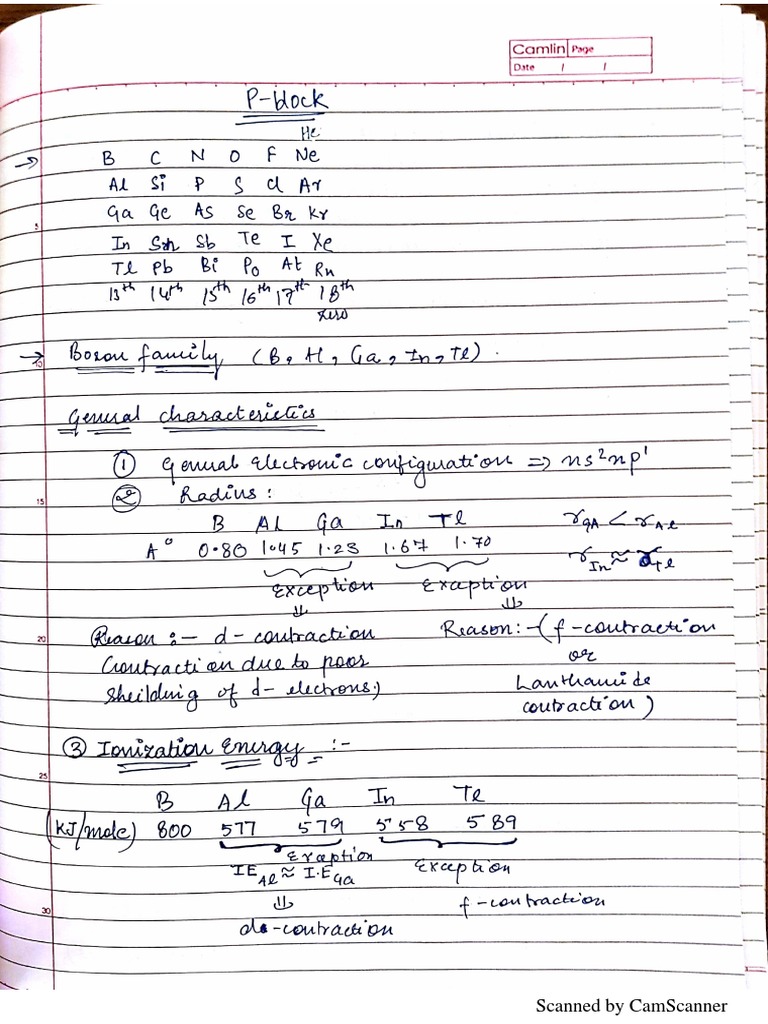 Camlin Page
Date / /
P-block
He
→ B C N O F Ne
Al Si P S Cl Ar
Ga Ge As Se Br Kr
5
In Sn Sb Te I Xe
Tl Pb Bi Po At Rn
13th 14th 15th 16th 17th 18th
zero
→ Boron family (B, Al, Ga, In, Tl).
10
General characteristics
① General Electronic configuration ⇒ ns²np¹
② Radius:
15
B Al Ga In Tl rGA < rAl
A° 0.80 1.45 1.23 1.67 1.70 rIn ≈ rTl
Exception Exception
⇓ ⇓
20
Reason :- d-contraction Reason:-(f-contraction
Contraction due to poor or
sheilding of d-electrons.) Lanthanide
contraction)
③ Ionization Energy :-
25
B Al Ga In Tl
(KJ/mole) 800 577 579 558 589
Exception Exception
IEAl ≈ I.EGa
⇓ f-contraction
30
d-contraction
Scanned by CamScanner